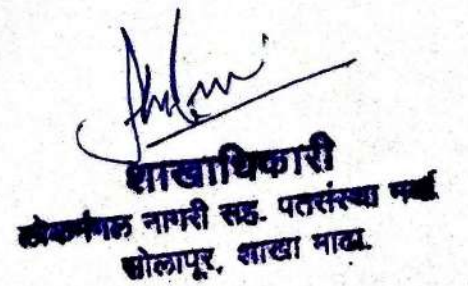 शाखाधिकारी
लोकमंगल नागरी सह. पतसंस्था मर्या.
सोलापूर, शाखा माढा.